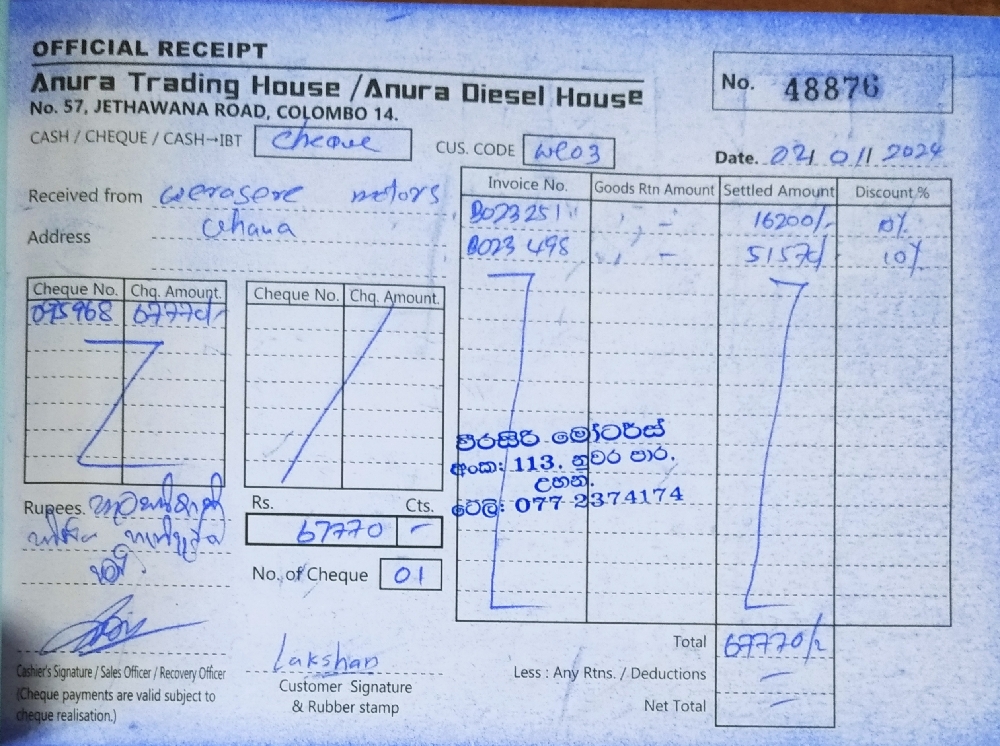 OFFICIAL RECEIPT
Anura Trading House / Anura Diesel House
No. 57, JETHAWANA ROAD, COLOMBO 14.
No. 48876
CASH / CHEQUE / CASH→IBT cheque
CUS. CODE WC03
Date. 02/01/2024
Received from werasere motors
Address Uhana
Invoice No. Goods Rtn Amount Settled Amount Discount %
B023251 - 16200/- 10%
B023498 - 51570/- 10%
Cheque No. Chq. Amount. Cheque No. Chq. Amount.
095968 67770/-
වීරසිරි මෝටර්ස්
අංක: 113, නුවර පාර,
උහන.
ටෙලි: 077 2374174
Rupees.
Rs. Cts.
67770 -
No. of Cheque 01
Total 67770/-
Less : Any Rtns. / Deductions -
Net Total -
Lakshan
Cashier's Signature / Sales Officer / Recovery Officer
(Cheque payments are valid subject to
cheque realisation.)
Customer Signature
& Rubber stamp